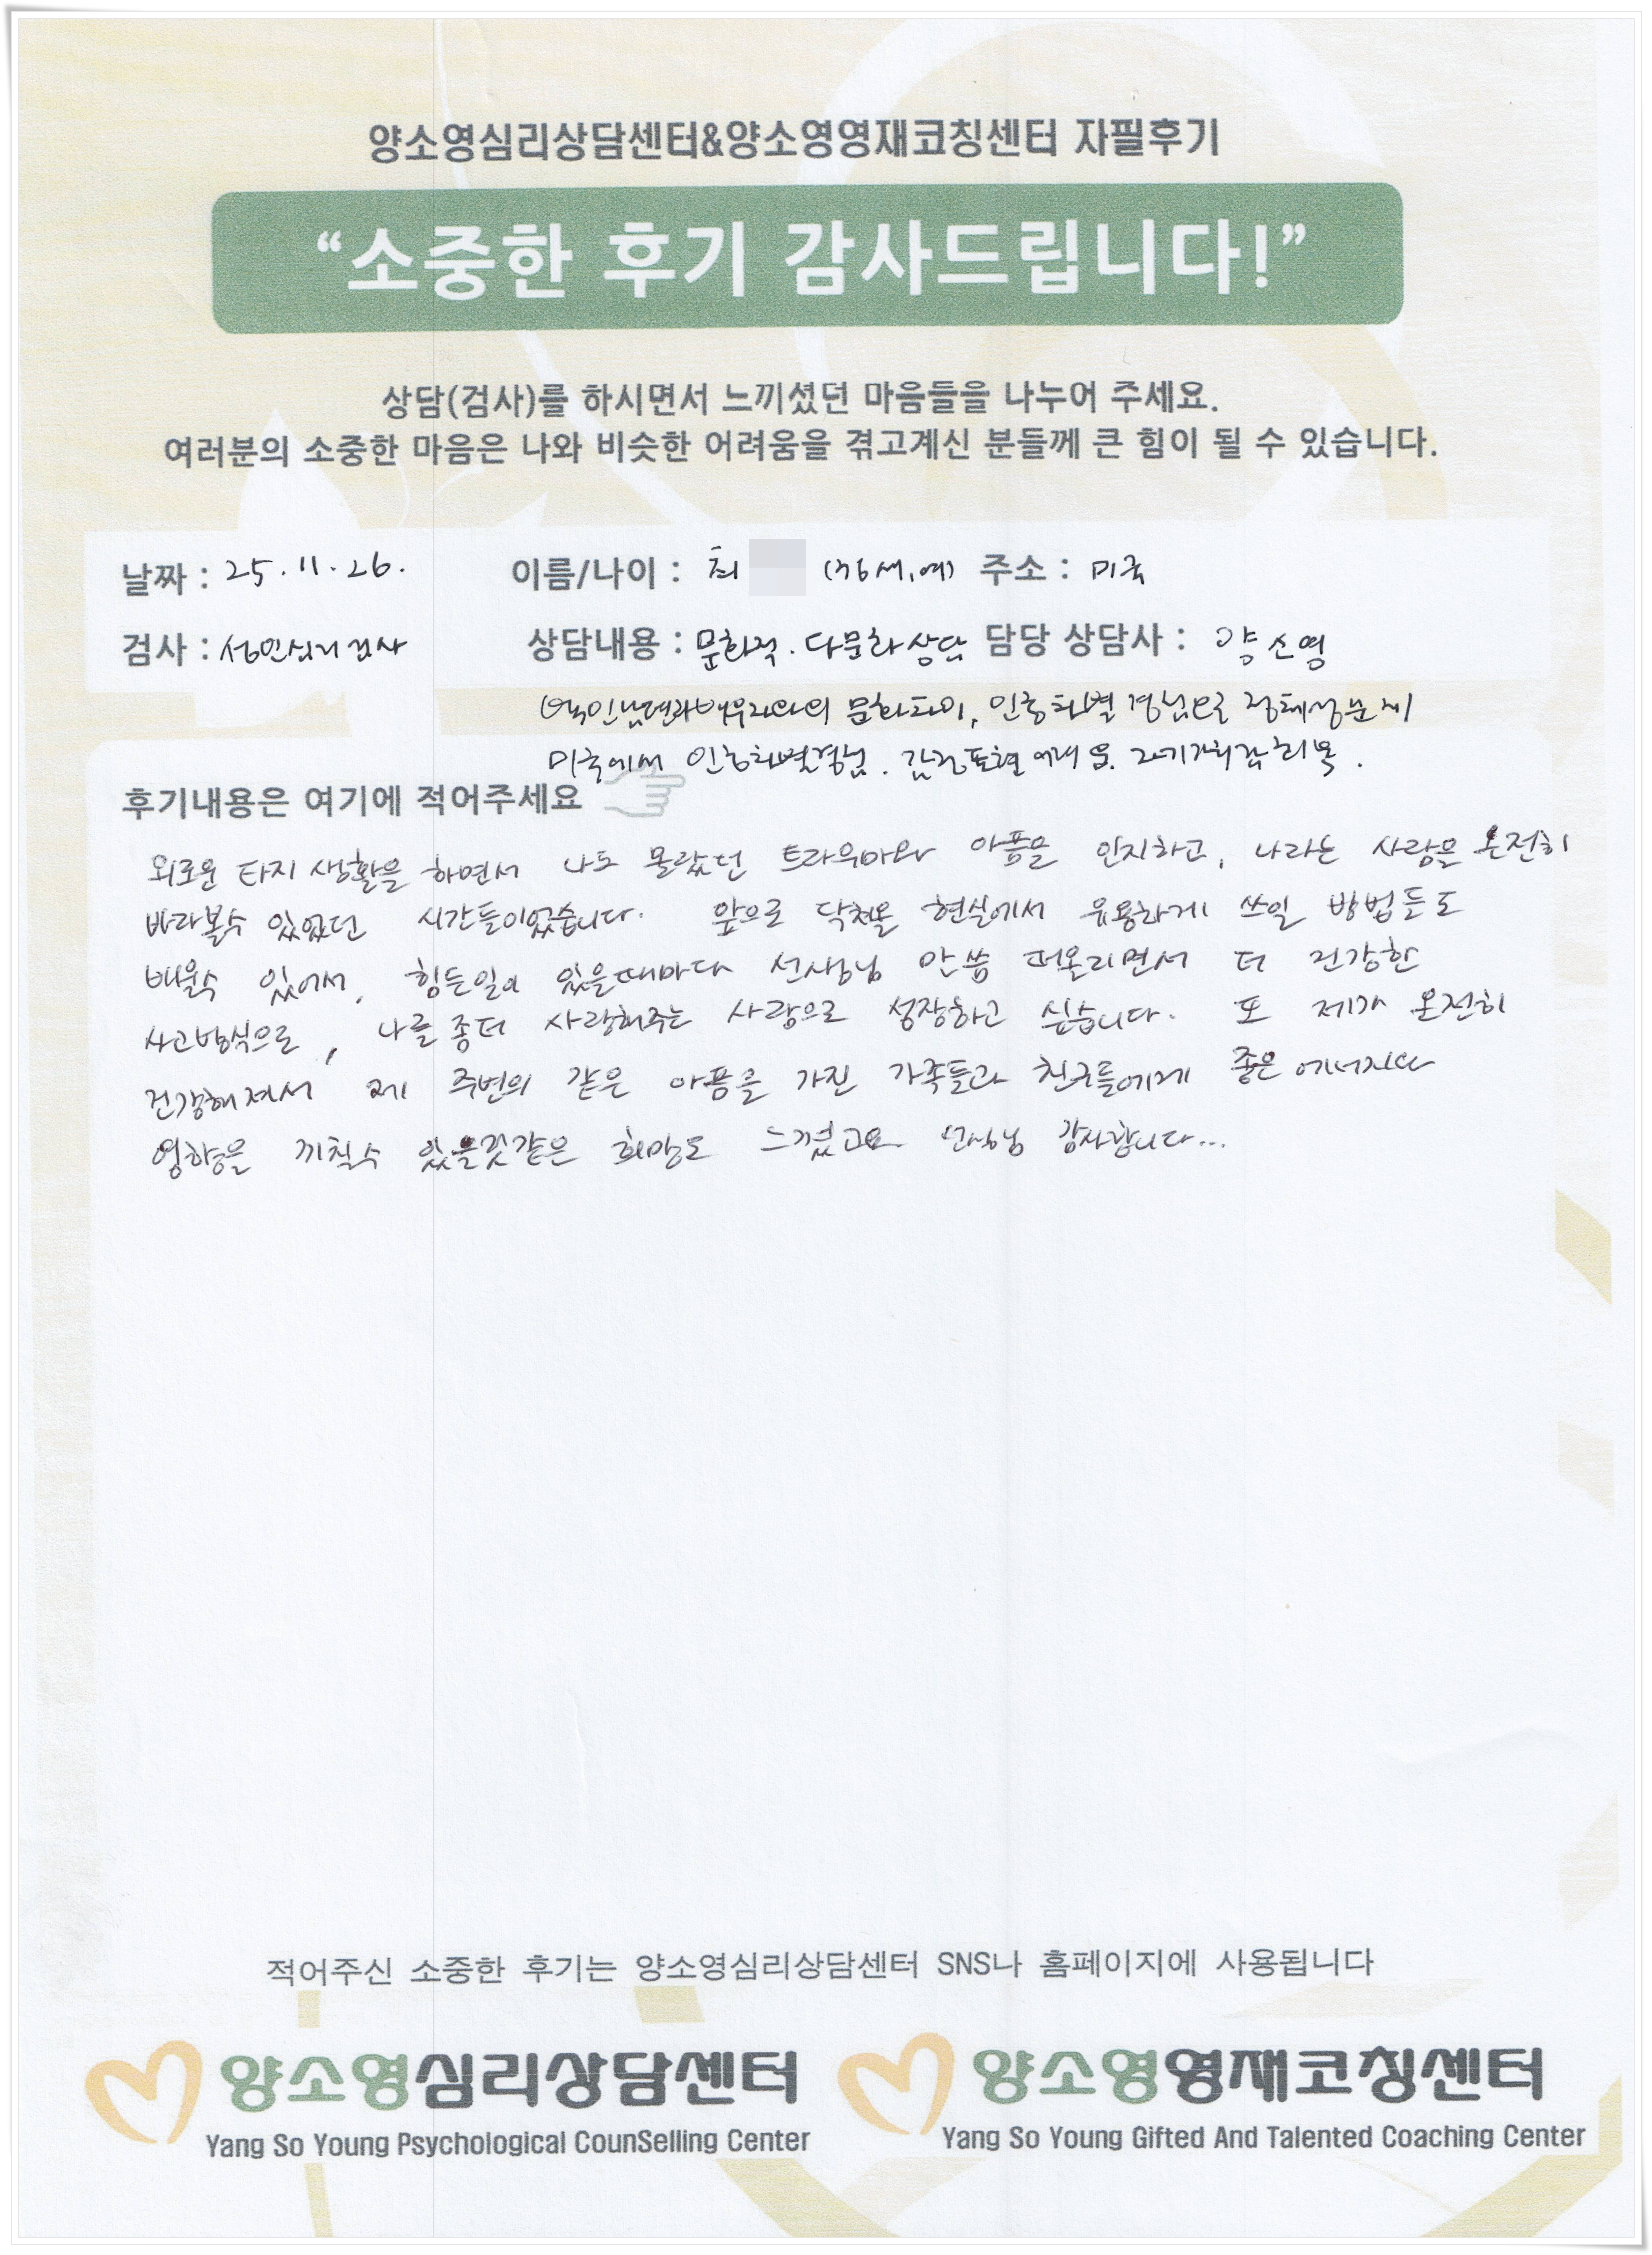 양소영심리상담센터&양소영영재코칭센터 자필후기
“소중한 후기 감사드립니다!”
상담(검사)를 하시면서 느끼셨던 마음들을 나누어 주세요.
여러분의 소중한 마음은 나와 비슷한 어려움을 겪고계신 분들께 큰 힘이 될 수 있습니다.
날짜 : 25.11.26. 이름/나이 : 최 (36세,여) 주소 : 미국
검사 : 성인심리검사 상담내용 : 문화적.다문화상담 담당 상담사 : 양소영
배우자와의 문화차이, 인종차별 경험으로 정체성문제
미국에서 인종차별경험. 감정표현 어려움. 자기가치감 회복.
후기내용은 여기에 적어주세요
외로운 타지 생활을 하면서 나도 몰랐던 트라우마와 아픔을 인지하고, 나라는 사람을 온전히
바라볼수 있었던 시간들이었습니다. 앞으로 닥쳐올 현실에서 유용하게 쓰일 방법들도
배울수 있어서, 힘든일이 있을때마다 선생님 말씀 떠올리면서 더 건강한
사고방식으로, 나를 좀더 사랑해주는 사람으로 성장하고 싶습니다. 또 제가 온전히
건강해져서 제 주변의 같은 아픔을 가진 가족들과 친구들에게 좋은 에너지와
영향을 끼칠수 있을것같은 희망도 느꼈고요 선생님 감사합니다...
적어주신 소중한 후기는 양소영심리상담센터 SNS나 홈페이지에 사용됩니다
양소영심리상담센터 양소영영재코칭센터
Yang So Young Psychological CounSelling Center Yang So Young Gifted And Talented Coaching Center